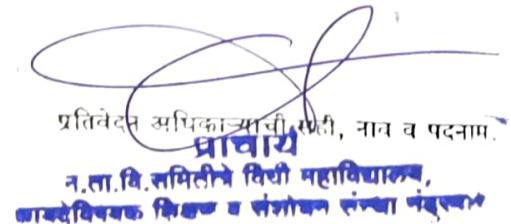 प्रतिवेदन अधिकाऱ्याची सही, नाव व पदनाम.
प्राचार्य
न.ता.वि.समितीचे विधी महाविद्यालय,
कायदेविषयक शिक्षण व संशोधन संस्था नंदुरबार